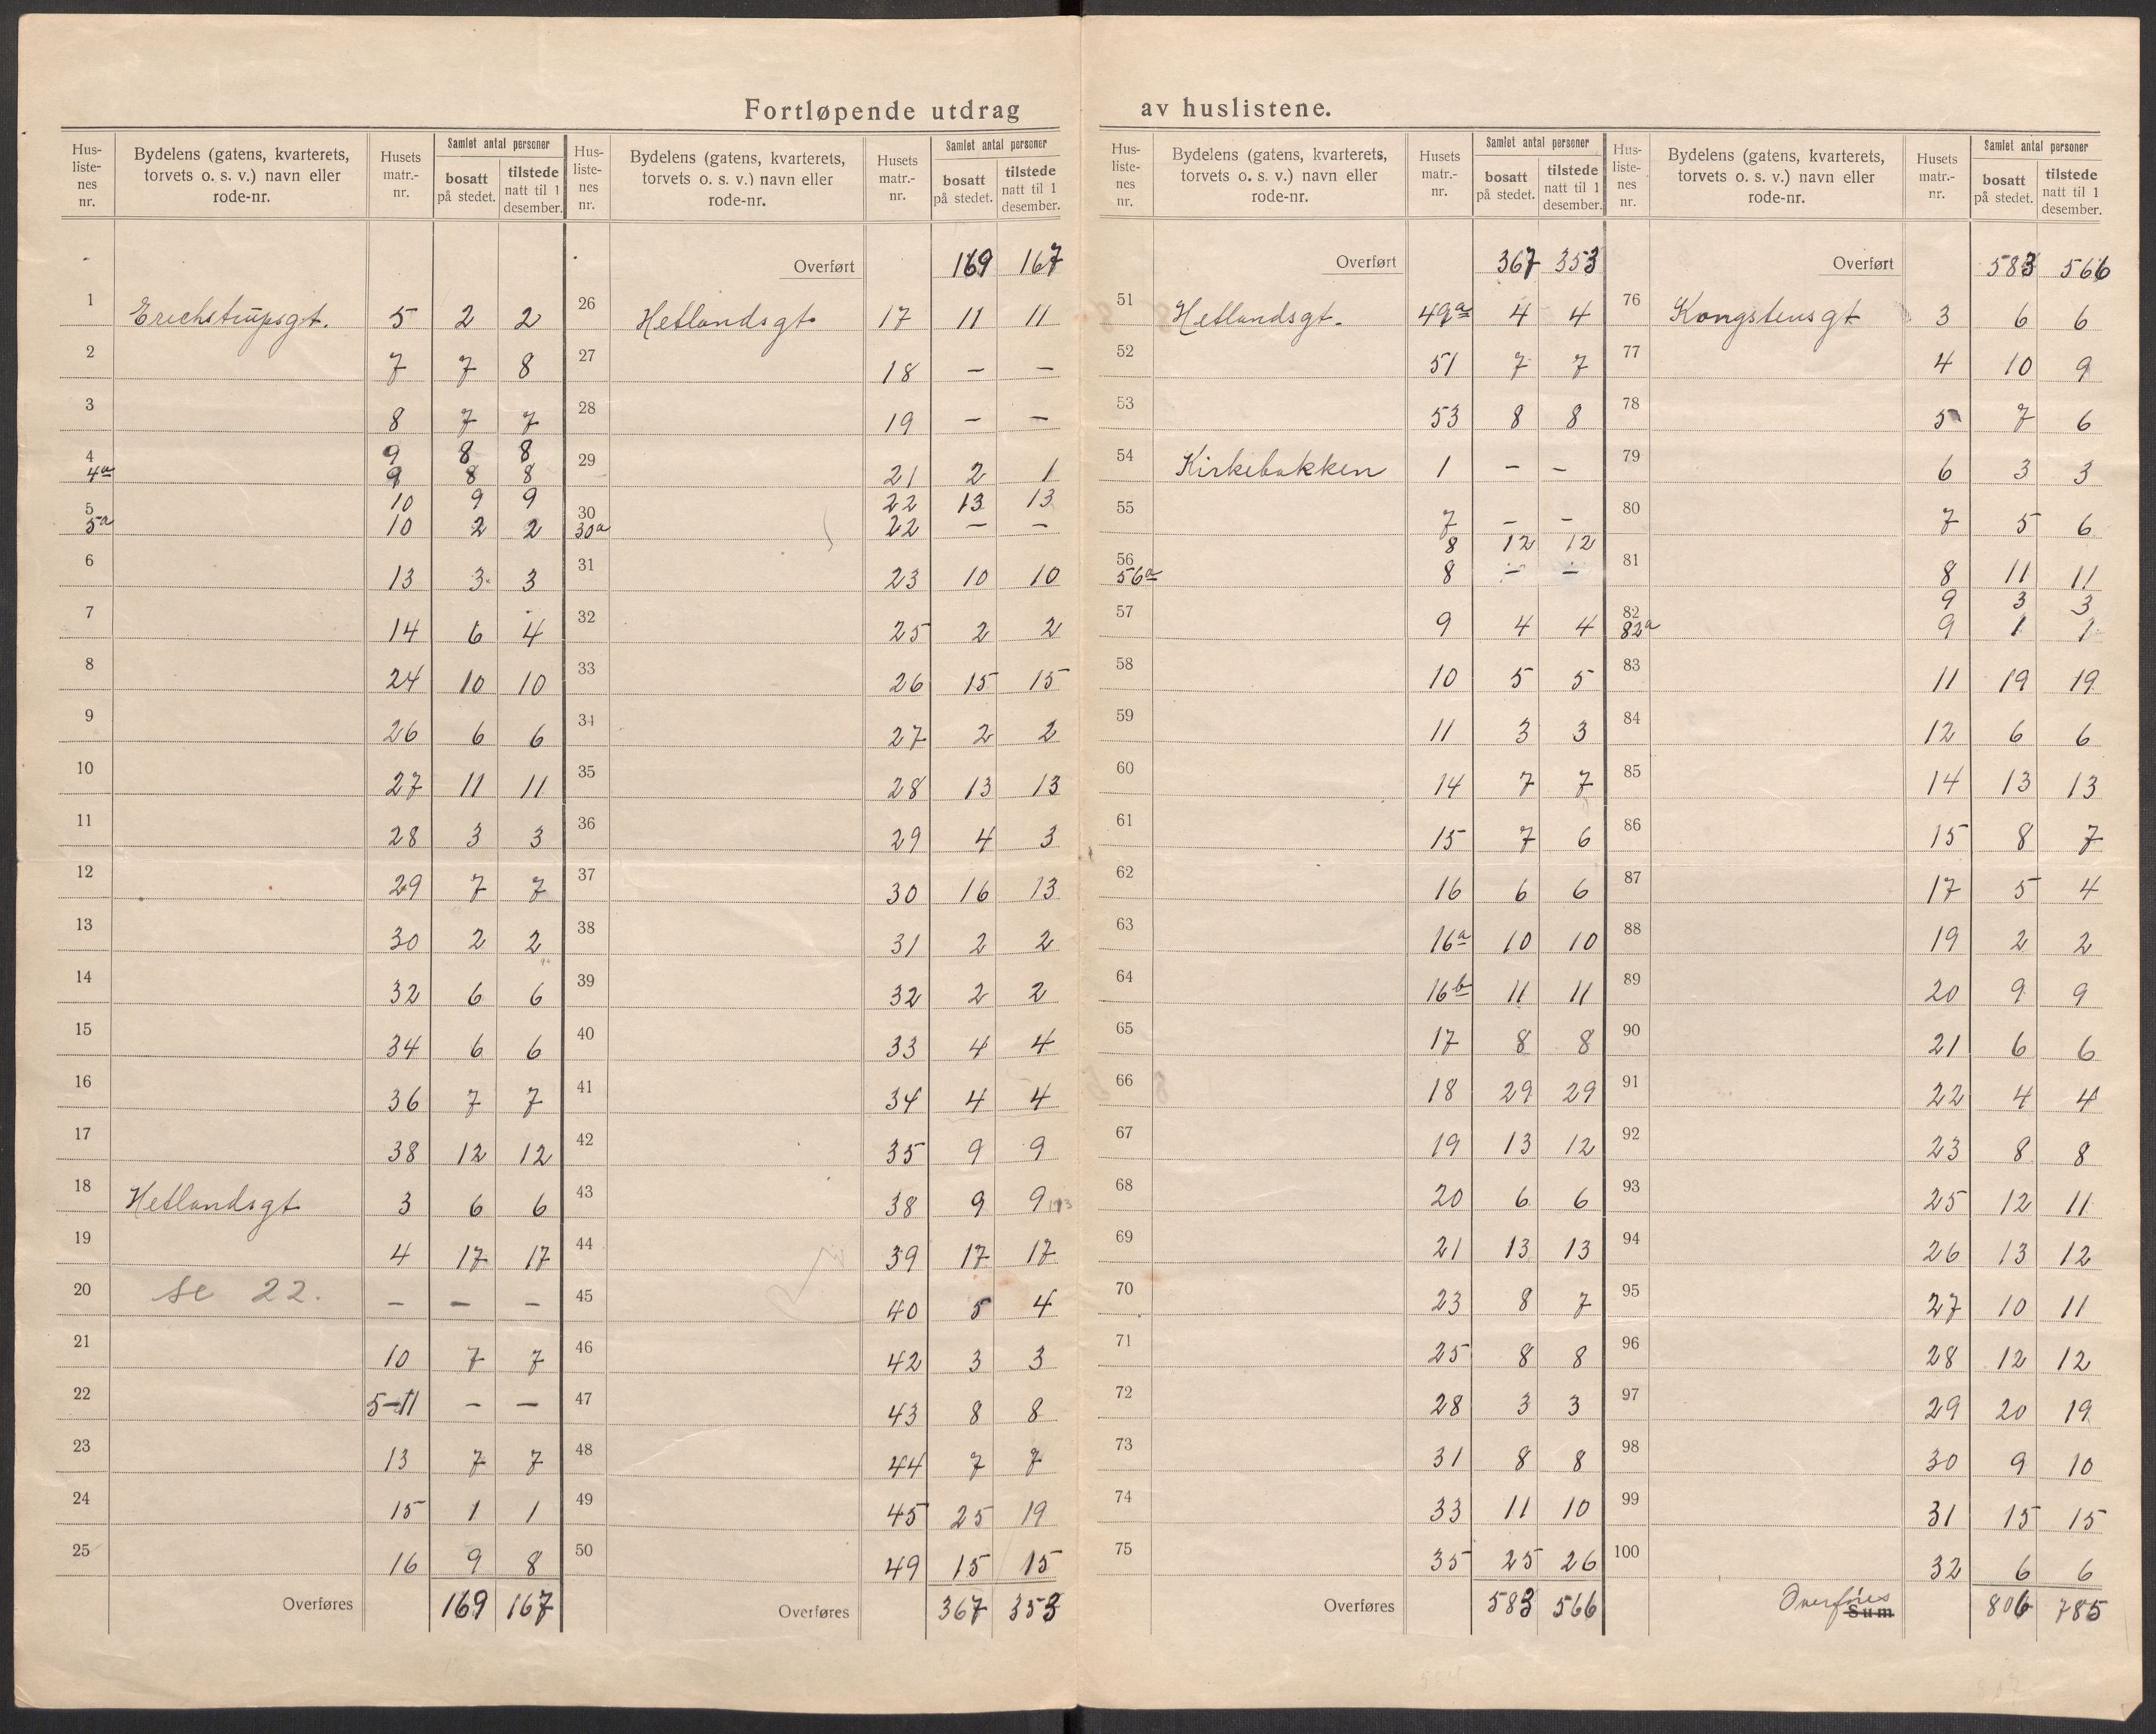 Fortløpende utdrag av huslistene.
Hus-liste-nes nr. | Bydelens (gatens, kvarterets, torvets o. s. v.) navn eller rode-nr. | Husets matr.-nr. | Samlet antal personer: bosatt på stedet. | tilstede natt til 1 desember.
1 Erichstrupsgt. 5 2 2
2 7 7 8
3 8 7 7
4 9 8 8
4a 9 8 8
5 10 9 9
5a 10 2 2
6 13 3 3
7 14 6 4
8 24 10 10
9 26 6 6
10 27 11 11
11 28 3 3
12 29 7 7
13 30 2 2
14 32 6 6
15 34 6 6
16 36 7 7
17 38 12 12
18 Hetlandsgt 3 6 6
19 4 17 17
20 se 22. — — —
21 10 7 7
22 5-11 — —
23 13 7 7
24 15 1 1
25 16 9 8
Overføres 169 167
Hus-liste-nes nr. | Bydelens (gatens, kvarterets, torvets o. s. v.) navn eller rode-nr. | Husets matr.-nr. | Samlet antal personer: bosatt på stedet. | tilstede natt til 1 desember.
Overført 169 167
26 Hetlandsgt. 17 11 11
27 18 — —
28 19 — —
29 21 2 1
30 22 13 13
30a 22 — —
31 23 10 10
32 25 2 2
33 26 15 15
34 27 2 2
35 28 13 13
36 29 4 3
37 30 16 13
38 31 2 2
39 32 2 2
40 33 4 4
41 34 4 4
42 35 9 9
43 38 9 9
44 39 17 17
45 40 5 4
46 42 3 3
47 43 8 8
48 44 7 7
49 45 25 19
50 49 15 15
Overføres 367 353
Hus-liste-nes nr. | Bydelens (gatens, kvarterets, torvets o. s. v.) navn eller rode-nr. | Husets matr.-nr. | Samlet antal personer: bosatt på stedet. | tilstede natt til 1 desember.
Overført 367 353
51 Hetlandsgt. 49a 4 4
52 51 7 7
53 53 8 8
54 Kirkebakken 1 — —
55 7 — —
56 8 12 12
56a 8 — —
57 9 4 4
58 10 5 5
59 11 3 3
60 14 7 7
61 15 7 6
62 16 6 6
63 16a 10 10
64 16b 11 11
65 17 8 8
66 18 29 29
67 19 13 12
68 20 6 6
69 21 13 13
70 23 8 7
71 25 8 8
72 28 3 3
73 31 8 8
74 33 11 10
75 35 25 26
Overføres 583 566
Hus-liste-nes nr. | Bydelens (gatens, kvarterets, torvets o. s. v.) navn eller rode-nr. | Husets matr.-nr. | Samlet antal personer: bosatt på stedet. | tilstede natt til 1 desember.
Overført 583 566
76 Kongstensgt 3 6 6
77 4 10 9
78 5 7 6
79 6 3 3
80 7 5 6
81 8 11 11
82 9 3 3
82a 9 1 1
83 11 19 19
84 12 6 6
85 14 13 13
86 15 8 7
87 17 5 4
88 19 2 2
89 20 9 9
90 21 6 6
91 22 4 4
92 23 8 8
93 25 12 11
94 26 13 12
95 27 10 11
96 28 12 12
97 29 20 19
98 30 9 10
99 31 15 15
100 32 6 6
Overføres Sum 806 785